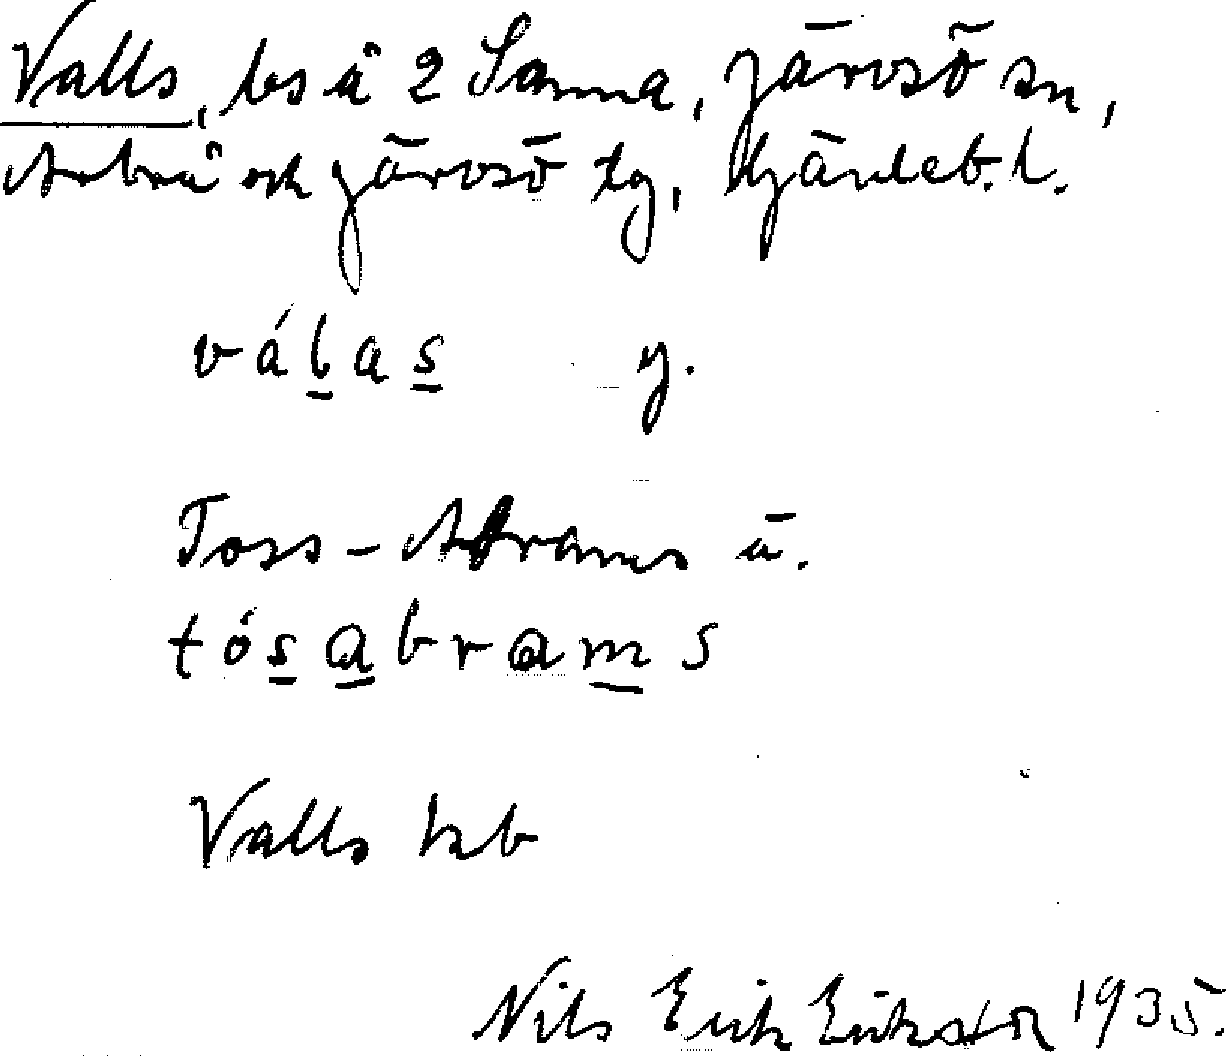 Valls, bs å 2 Sanna, Järvsö sn,
Arbrå och Järvsö tg, Gävleb. l.
válas y.
Toss-Abrams ä.
tósabrams
Valls kb
Nils Erik Eriksson 1935.